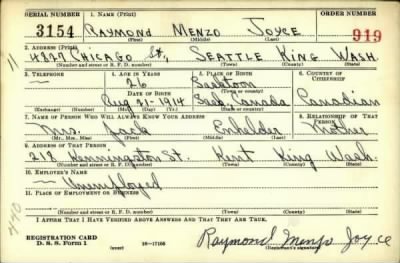 SERIAL NUMBER 1. NAME (Print) ORDER NUMBER
3154 RAYMOND MENZO JOYCE 919
(First) (Middle) (Last)
2. ADDRESS (Print)
4820 CHICAGO St, SEATTLE KING WASH.
(Number and street or R. F. D. number) (Town) (County) (State)
11
3. TELEPHONE 4. AGE IN YEARS 5. PLACE OF BIRTH 6. COUNTRY OF CITIZENSHIP
— 26
DATE OF BIRTH (Town or county)
Aug 21-1914 Canada Canadian
(Exchange) (Number) (Mo.) (Day) (Yr.) (State or country)
7. NAME OF PERSON WHO WILL ALWAYS KNOW YOUR ADDRESS 8. RELATIONSHIP OF THAT PERSON
Mrs. Jack Enhelder Mother
(Mr., Mrs., Miss) (First) (Middle) (Last)
9. ADDRESS OF THAT PERSON
212 St. Kent King Wash.
(Number and street or R. F. D. number) (Town) (County) (State)
10. EMPLOYER'S NAME
— Unemployed
11. PLACE OF EMPLOYMENT OR BUSINESS
(Number and street or R. F. D. number) (Town) (County) (State)
I AFFIRM THAT I HAVE VERIFIED ABOVE ANSWERS AND THAT THEY ARE TRUE.
REGISTRATION CARD
D. S. S. Form 1 (over) 16—17105 Raymond Menzo Joyce
(Registrant's signature)